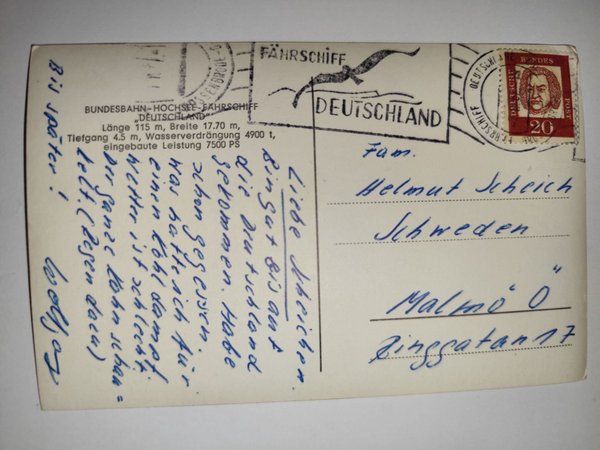 BUNDESBAHN-HOCHSEE-FÄHRSCHIFF
„DEUTSCHLAND"
Länge 115 m, Breite 17.70 m,
Tiefgang 4.5 m, Wasserverdrängung 4900 t,
eingebaute Leistung 7500 PS
FÄHRSCHIFF
DEUTSCHLAND
DEUTSCHE BUNDESPOST
20
FÄHRSCHIFF
Liebe Scheichen.
Bin gut bis auf
die Deutschland
gekommen. Habe
schon gegessen.
was hatte ich für
einen Kohldampf.
Wetter ist schlecht,
der ganze Kahn schau=
kelt. (Regen dazu)
Bis später!
Fam.
Helmut Scheich
Schweden
Malmö Ö
Ringgatan 17